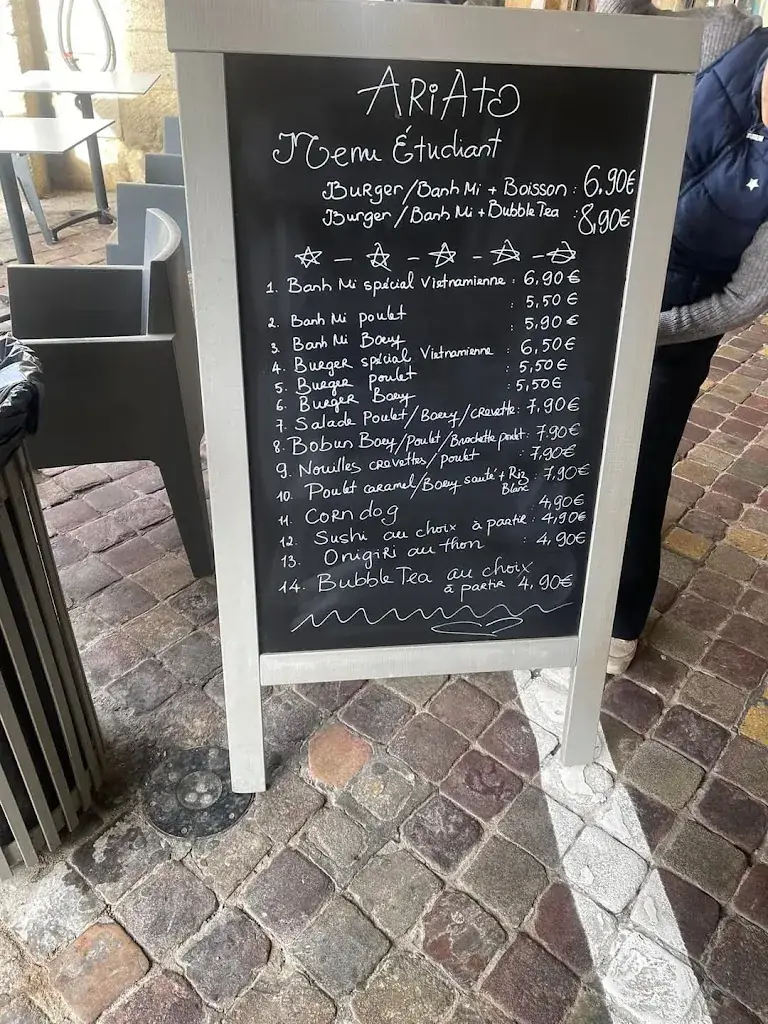 ARiAtO
Menu Étudiant
Burger/Banh Mi + Boisson : 6,90€
Burger/Banh Mi + Bubble Tea : 8,90€
1. Banh Mi spécial Vietnamienne : 6,90€
2. Banh Mi poulet : 5,50€
3. Banh Mi Boeuf : 5,90€
4. Burger spécial Vietnamienne : 6,50€
5. Burger poulet : 5,50€
6. Burger Boeuf : 5,50€
7. Salade Poulet/Boeuf/crevette : 7,90€
8. Bobun Boeuf/Poulet/Brochette poulet : 7,90€
9. Nouilles crevettes/poulet : 7,90€
10. Poulet caramel/Boeuf sauté + Riz Blanc : 7,90€
11. Corn dog 4,90€
12. Sushi au choix à partir : 4,90€
13. Onigiri au thon : 4,90€
14. Bubble Tea au choix
à partir 4,90€